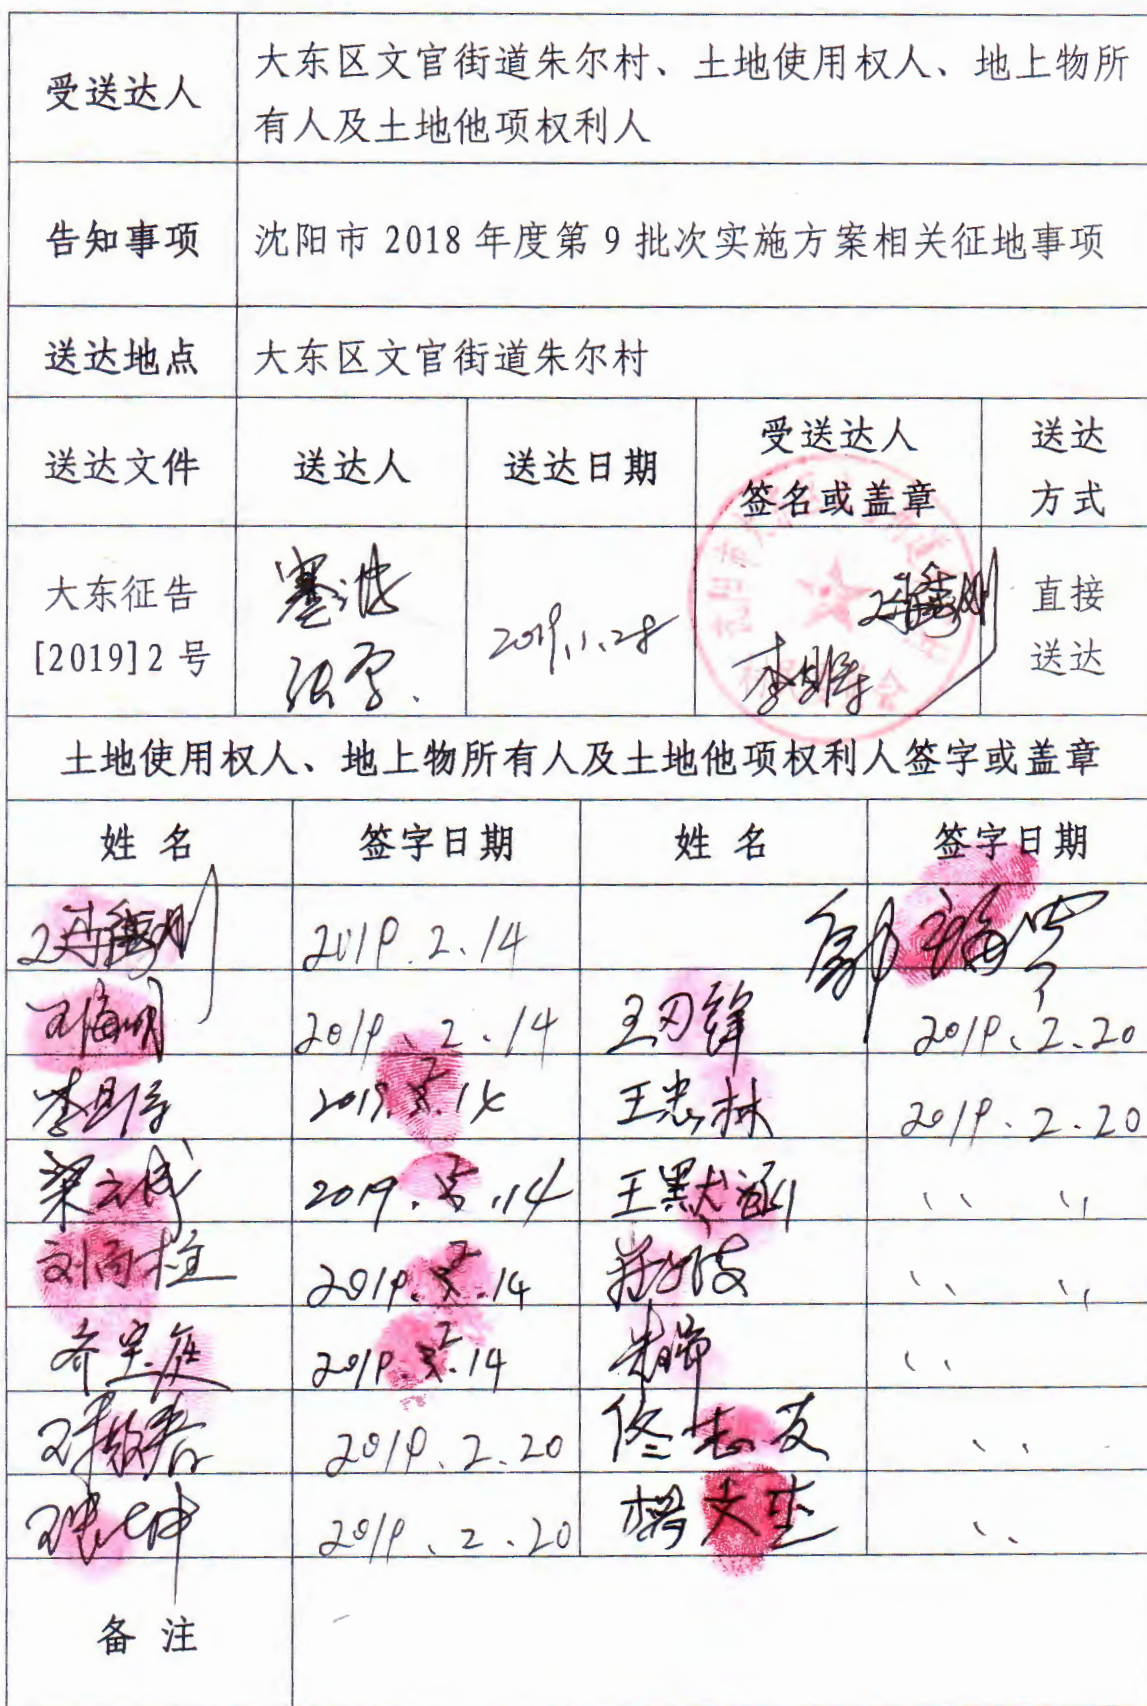 受送达人
大东区文官街道朱尔村、土地使用权人、地上物所
有人及土地他项权利人
告知事项
沈阳市 2018 年度第 9 批次实施方案相关征地事项
送达地点
大东区文官街道朱尔村
送达文件 送达人 送达日期 受送达人 签名或盖章 送达 方式
大东征告
[2019]2 号
2019.1.28
直接
送达
土地使用权人、地上物所有人及土地他项权利人签字或盖章
姓 名 签字日期 姓 名 签字日期
2019.2.14
王海明 2019.2.14 王刃锋 2019.2.20
2019.2.14 王忠林 2019.2.20
梁云成 2019.2.14 王默涵 、、 、、
2019.2.14 、、 、、
齐宝庭 2019.2.14 、、
2019.2.20 佟志友 、、
2019.2.20 杨文杰 、、
备 注